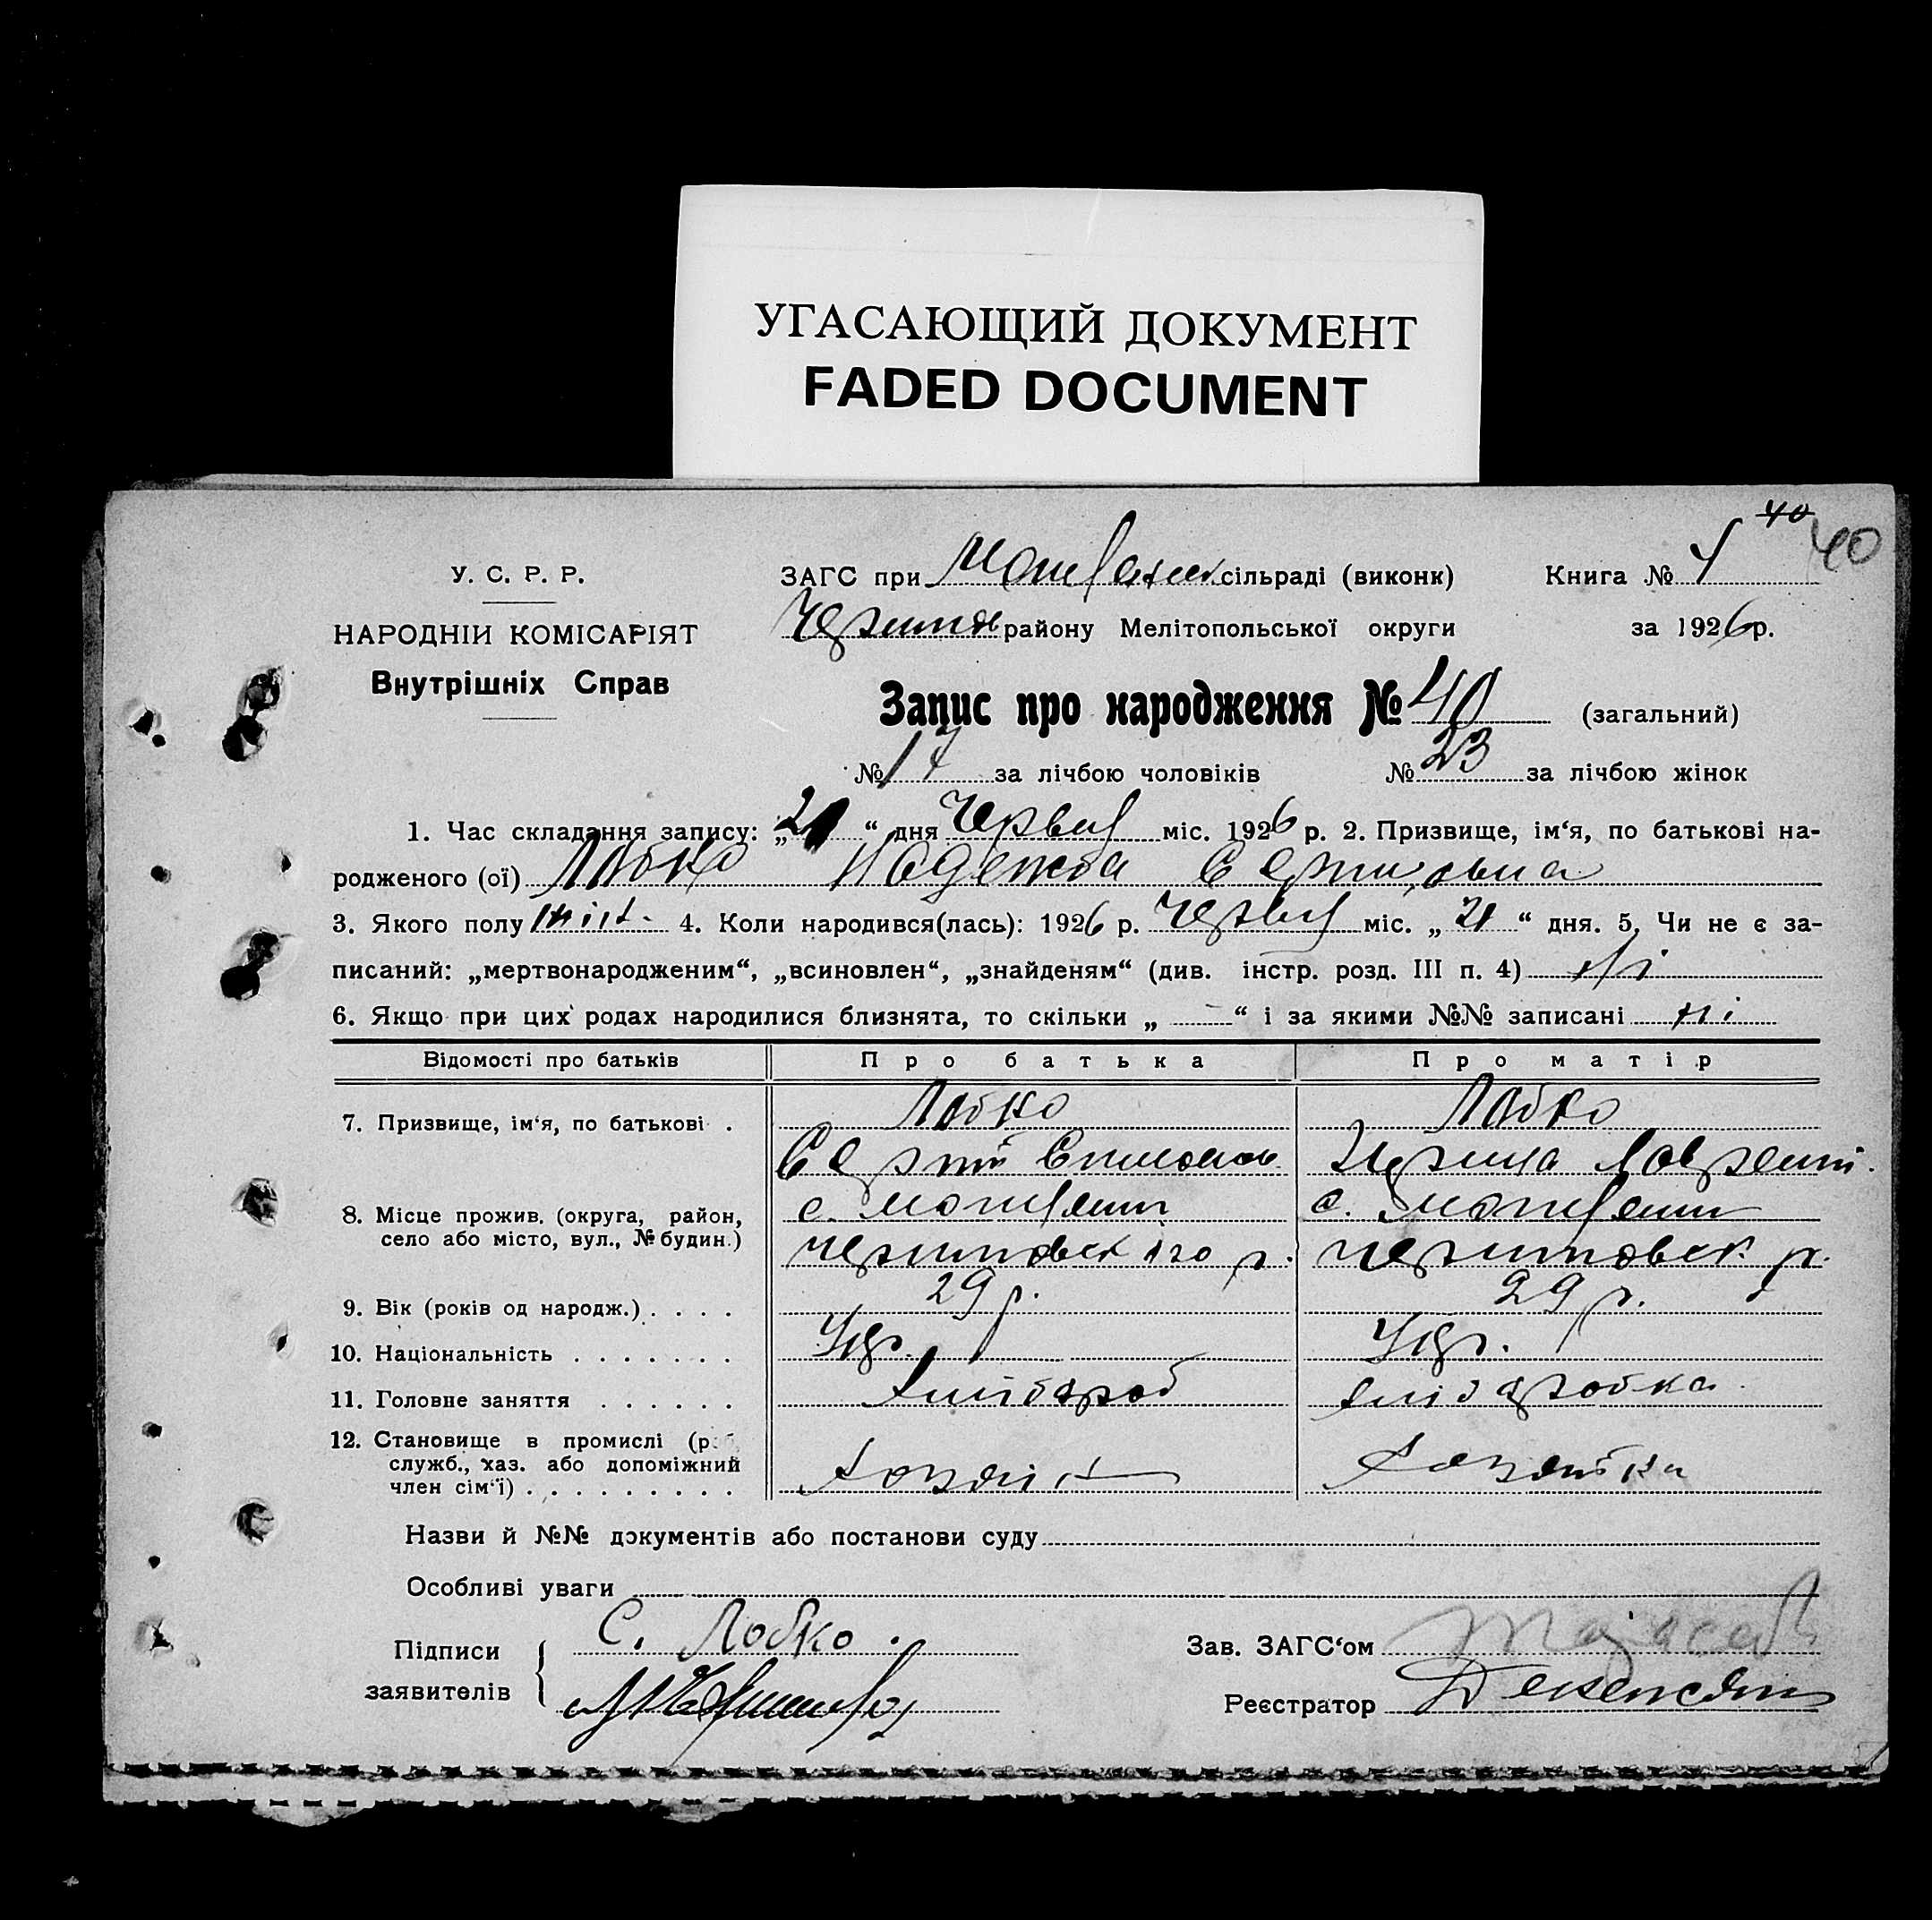 УГАСАЮЩИЙ ДОКУМЕНТ
FADED DOCUMENT
40
40
У. С. Р. Р.
НАРОДНІЙ КОМІСАРІЯТ
Внутрішніх Справ
ЗАГС при сільраді (виконк) Книга №
району Мелітопольської округи за 1926 р.
Запис про народження № 40 (загальний)
№ 17 за лічбою чоловіків № 23 за лічбою жінок
1. Час складання запису: „21“ дня Червня міс. 1926 р. 2. Призвище, ім‘я, по батькові на-
родженого (ої) Лобко Надежда Сергиовна
3. Якого полу жін. 4. Коли народився(лась): 1926 р. Червня міс. „21“ дня. 5. Чи не є за-
писаний: „мертвонародженим“, „всиновлен“, „знайденям“ (див. інстр. розд. III п. 4) ні
6. Якщо при цих родах народилися близнята, то скільки „ — “ і за якими №№ записані ні
Відомості про батьків Про батька Про матір
7. Призвище, ім‘я, по батькові . Лобко Лобко
Сергій
8. Місце прожив. (округа, район, с. с.
село або місто, вул., № будин.) р. р.
9. Вік (років од народж.) . . . . 29 р. 29 р.
10. Національність . . . . . . . Укр. Укр.
11. Головне заняття . . . . . . Хлібороб хліборобка
12. Становище в промислі (роб.
служб., хаз. або допоміжний Хозяїн Хозяйка
член сім‘ї) . . . . . . . . .
Назви й №№ документів або постанови суду
Особливі уваги
Підписи С. Лобко. Зав. ЗАГС‘ом
заявителів Реєстратор